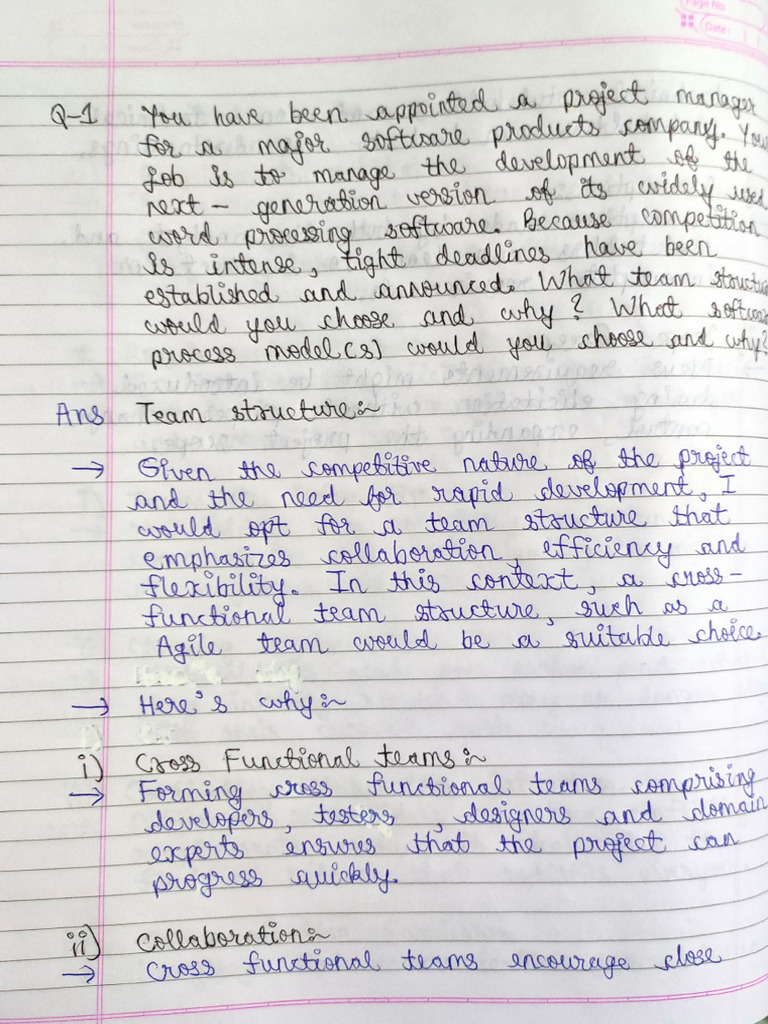 Page No.
Date:
Q-1 You have been appointed a project manager
for a major software products company. You
Job is to manage the development of the
next - generation version of its widely used
word processing software. Because competition
is intense, tight deadlines have been
established and announced. What team structu
would you choose and why? What softwa
process model(s) would you choose and why?
Ans Team structure:~
→ Given the competitive nature of the project
and the need for rapid development, I
would opt for a team structure that
emphasizes collaboration, efficiency and
flexibility. In this context, a cross-
functional team structure, such as a
Agile team would be a suitable choice.
→ Here's why:~
i) Cross Functional teams:~
→ Forming cross functional teams comprising
developers, testers, designers and domain
experts ensures that the project can
progress quickly.
ii) Collaboration:~
→ Cross functional teams encourage close